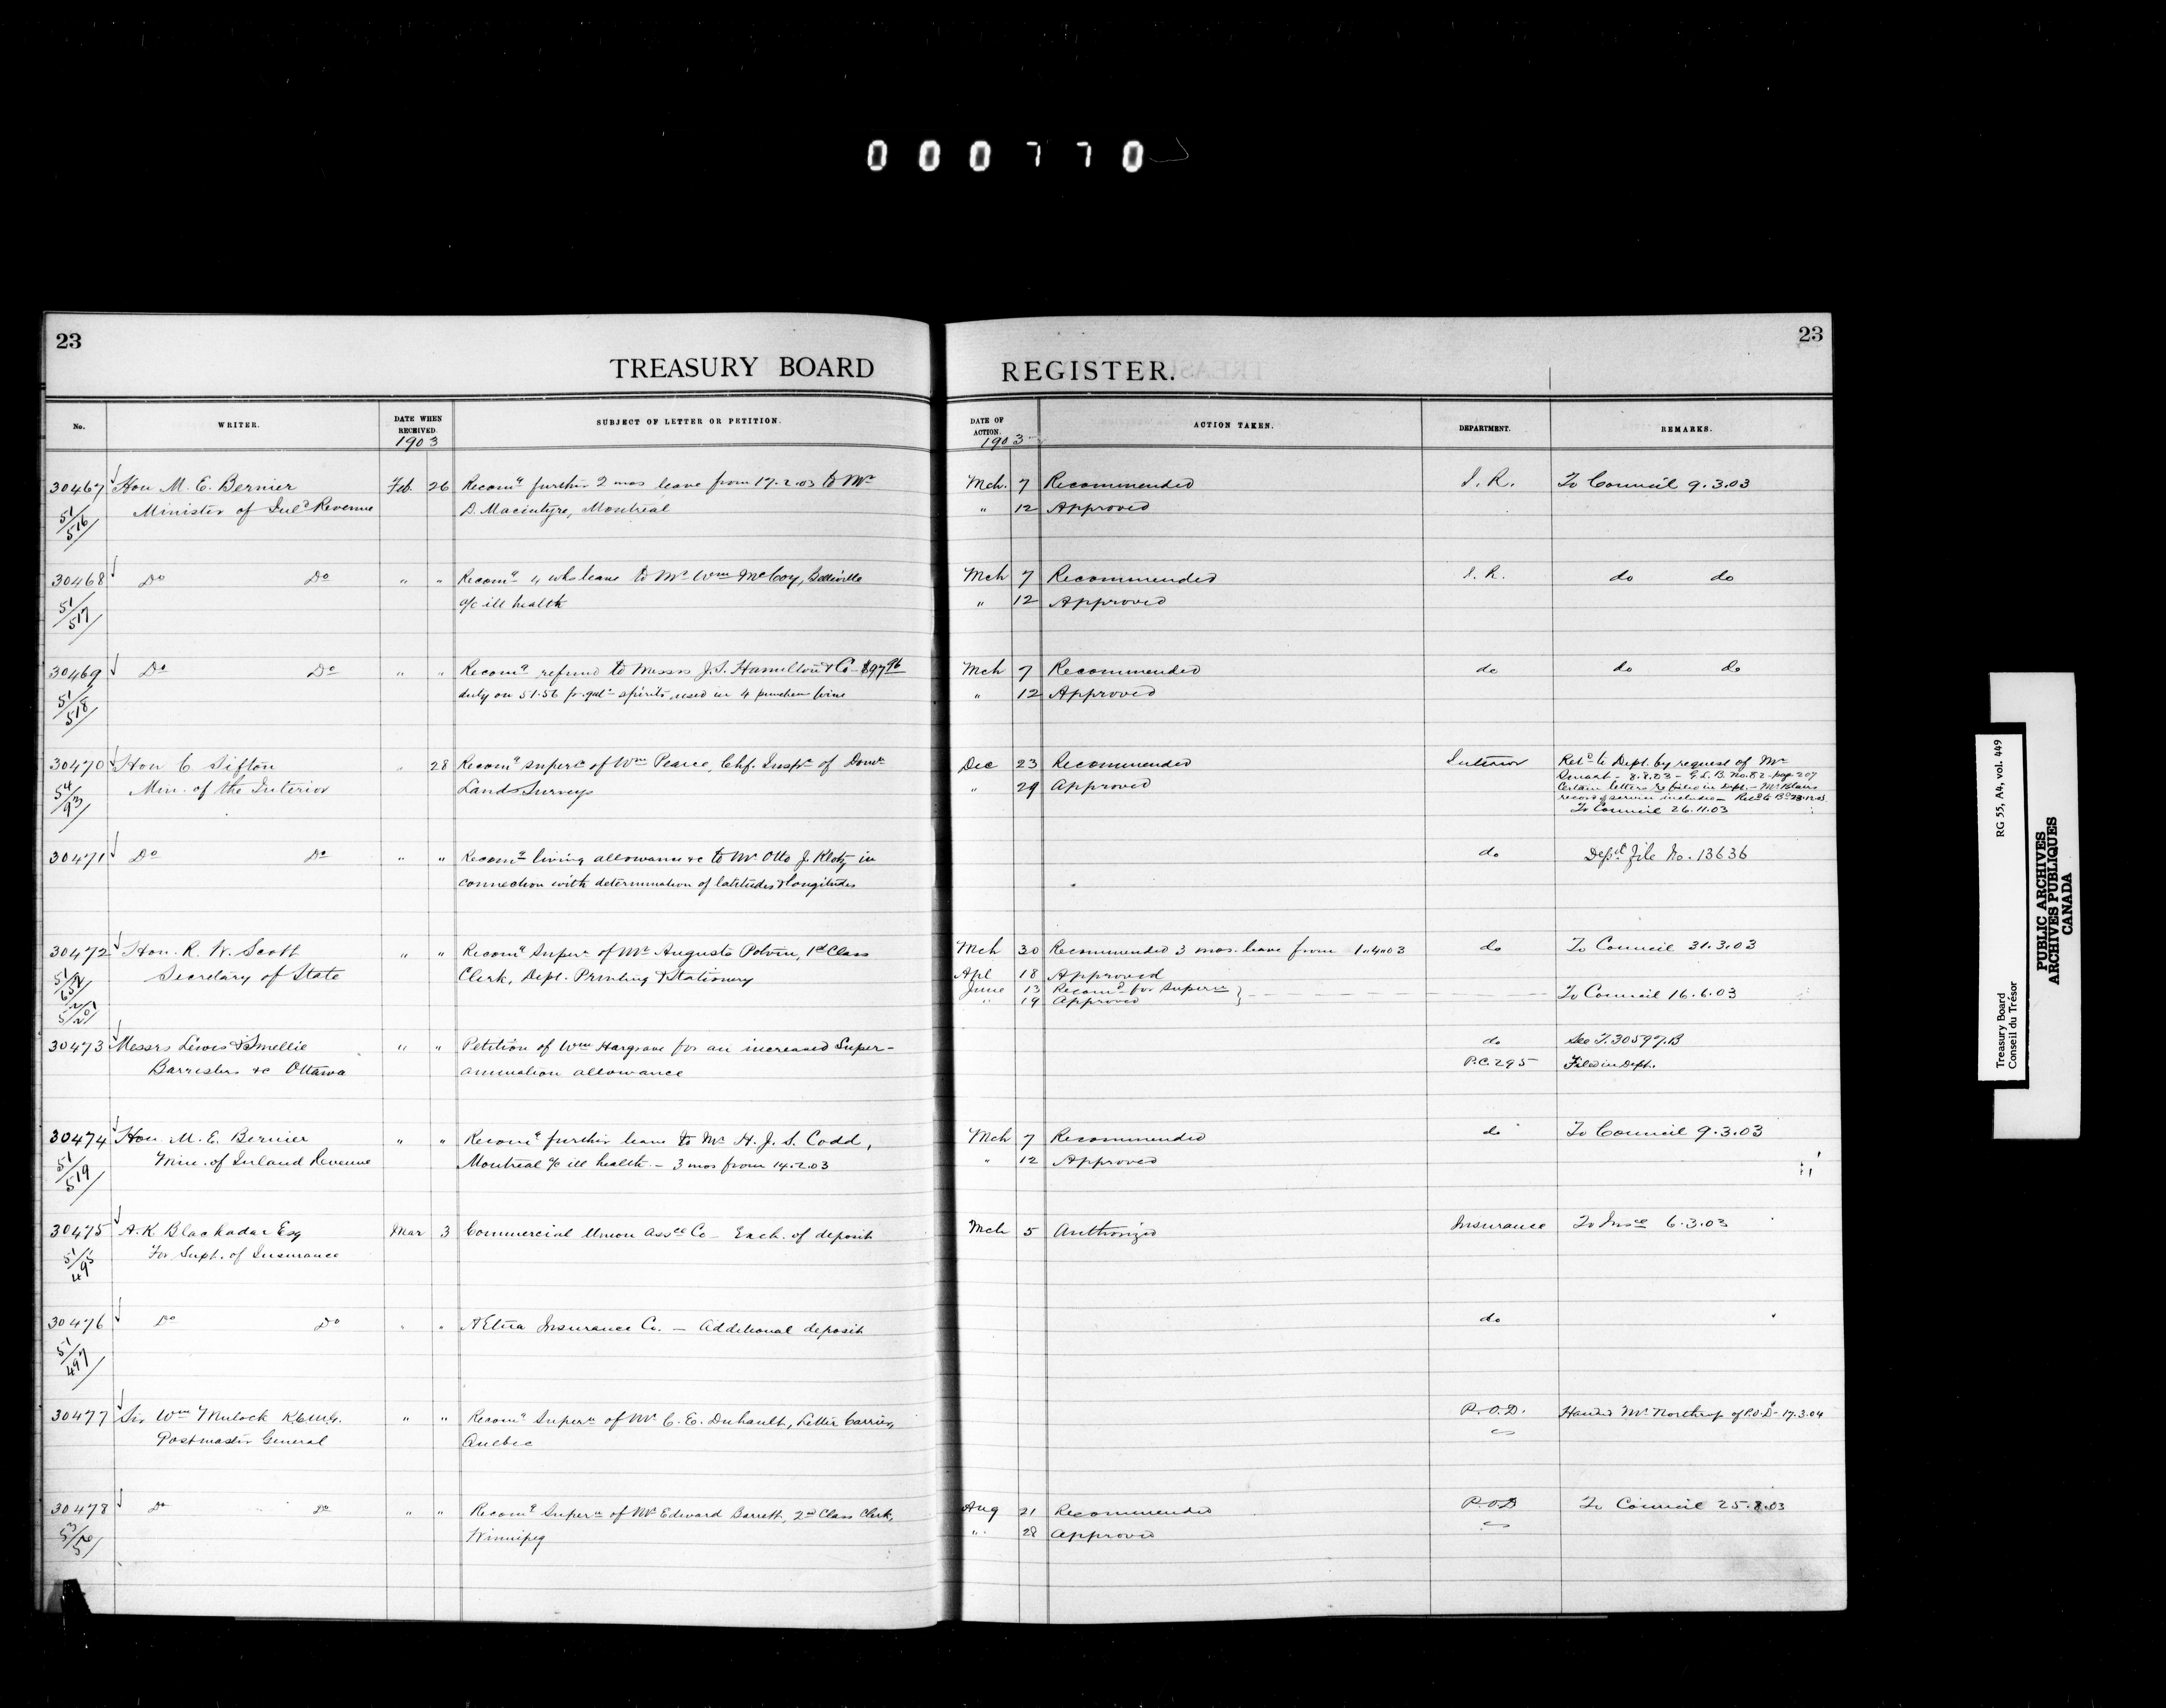 000770
23
23
TREASURY BOARD
REGISTER.
No.
WRITER.
DATE WHEN RECEIVED.
1903
SUBJECT OF LETTER OR PETITION.
DATE OF ACTION.
1903
ACTION TAKEN.
DEPARTMENT.
REMARKS.
30467 Hon M. E. Bernier Feb. 26 Recomd further 2 mos leave from 17.2.03 to Mr Mch. 7 Recommended I. R. To Council 9.3.03
51/516 Minister of Inld Revenue D. Macintyre, Montreal " 12 Approved
30468 Do Do " " Recomd 4 wks leave to Mr Wm McCoy, Belleville Mch 7 Recommended I. R. do do
51/517 a/c ill health " 12 Approved
30469 Do Do " " Recomd refund to Messrs J. S. Hamilton & Co $97.96 Mch 7 Recommended do do do
51/518 duty on 51.56 pr. gals spirits used in 4 puncheon wine " 12 Approved
30470 Hon C. Sifton " 28 Recomd supern of Wm Pearce, Chf. Inspr of Domn Dec 23 Recommended Interior Retd to Dept. by request of Mr
54/93 Min. of the Interior Lands Surveys " 29 Approved 8.8.03 - G.L.B. No. 82 - page 207
Certain letters re filed in Dept. - Mr
record of service included - Retd to Bd
To Council 26.11.03
30471 Do Do " " Recomd living allowance &c to Mr Otto J. Klotz in do Deptl File No. 13636
connection with determination of latitudes & longitudes
30472 Hon. R. W. Scott " " Recomd Supern of Mr Auguste Potvin, 1st Class Mch 30 Recommended 3 mos. leave from 1.4.03 do To Council 31.3.03
Secretary of State Clerk, Dept. Printing & Stationery Apl 18 Approved
June 13 Recomd for Supern
" 19 Approved To Council 16.6.03
30473 Messrs Lewis & Smellie " " Petition of Wm Hargrave for an increased Super- do See T.30597.B
Barristers &c Ottawa annuation allowance P.C. 295 Filed in Dept.
30474 Hon. M. E. Bernier " " Recomd further leave to Mr H. J. S. Codd, Mch 7 Recommended do To Council 9.3.03
51/519 Min. of Inland Revenue Montreal a/c ill health - 3 mos from 14.2.03 " 12 Approved
30475 A. K. Blackadar Esq Mar 3 Commercial Union Assce Co - Exch. of deposit Mch 5 Authorized Insurance To Insce 6.3.03
51/495 For Supt. of Insurance
30476 Do Do " " Ætna Insurance Co. - Additional deposit do
51/497
30477 Sir Wm Mulock K.C.M.G. " " Recomd Supern of Mr C. E. Duhault, Letter Carrier, P.O.D. Handed Mr Northrop of P.O.D. - 17.3.04
Postmaster General Quebec
30478 Do Do " " Recomd Supern of Mr Edward Barrett, 2nd Class Clerk, Aug 21 Recommended P.O.D To Council 25.8.03
Winnipeg " 28 Approved
Treasury Board RG 55, A4, vol. 449
Conseil du Trésor
PUBLIC ARCHIVES
ARCHIVES PUBLIQUES
CANADA